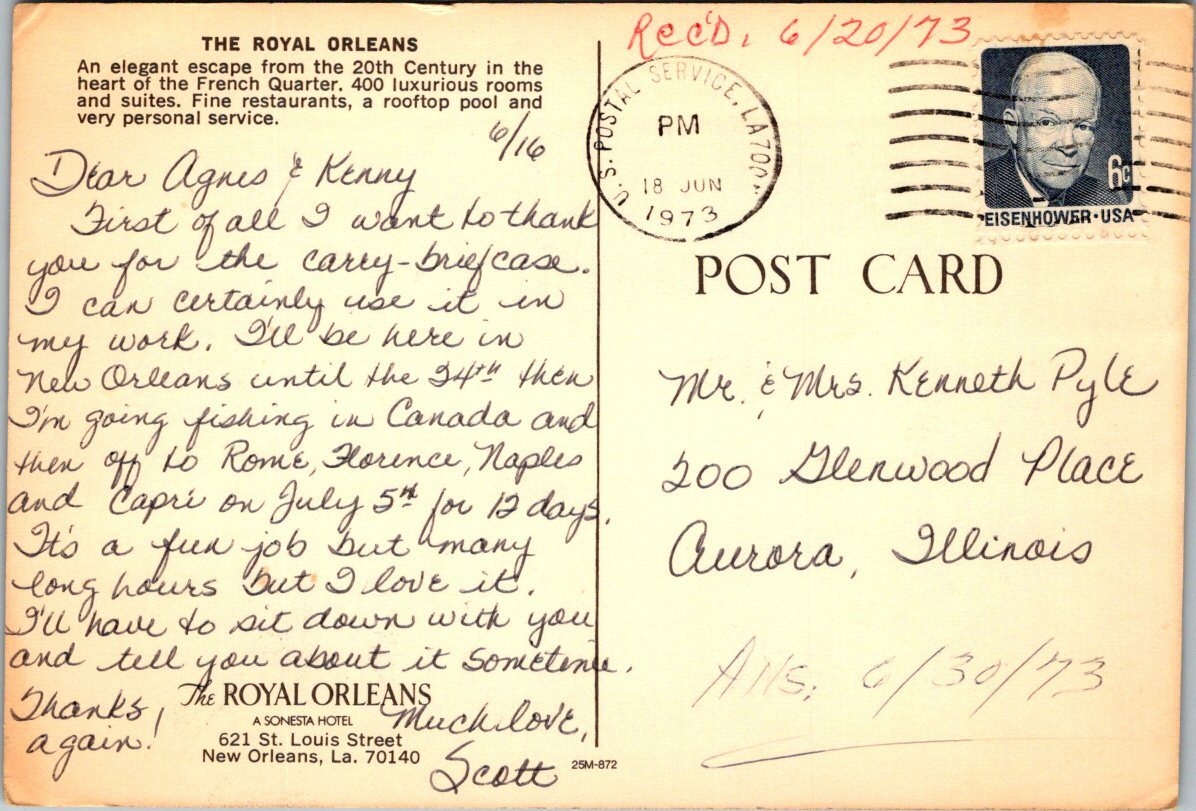 THE ROYAL ORLEANS
An elegant escape from the 20th Century in the
heart of the French Quarter. 400 luxurious rooms
and suites. Fine restaurants, a rooftop pool and
very personal service.
6/16
Dear Agnes & Kenny
First of all I want to thank
you for the carry-briefcase.
I can certainly use it in
my work. I'll be here in
New Orleans until the 24th then
I'm going fishing in Canada and
then off to Rome, Florence, Naples
and Capri on July 5th for 12 days.
It's a fun job but many
long hours but I love it.
I'll have to sit down with you
and tell you about it sometime.
Thanks,
again!
The ROYAL ORLEANS
A SONESTA HOTEL
621 St. Louis Street
New Orleans, La. 70140
Much love,
Scott
25M-872
Rec'd. 6/20/73
U.S. POSTAL SERVICE, LA
PM
18 JUN
1973
6c
EISENHOWER·USA
POST CARD
Mr. & Mrs. Kenneth Pyle
200 Glenwood Place
Aurora, Illinois
Ans; 6/30/73